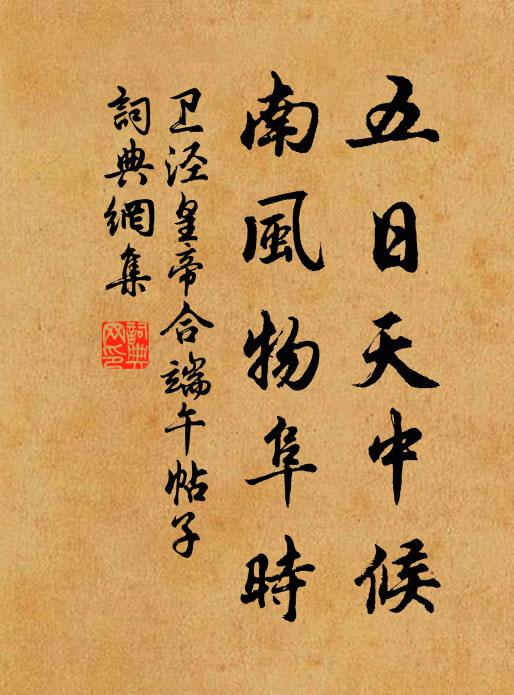 五日天中候
南風物阜時
卫泾皇帝合端午帖子
詞典網集
詞典網印